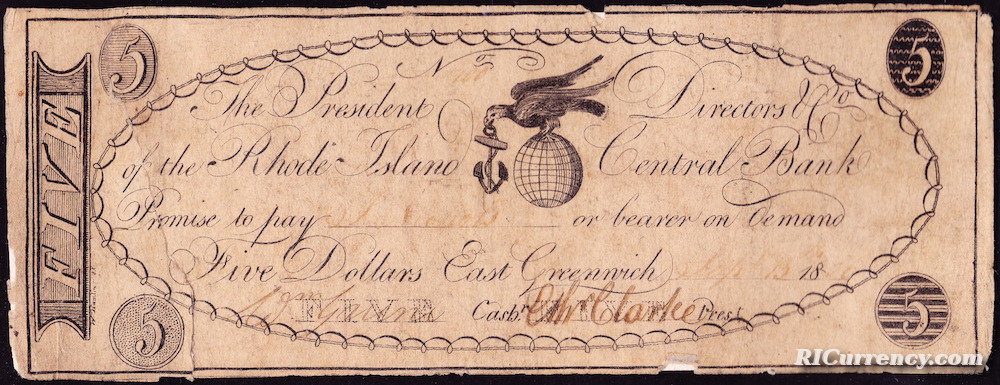 5
5
FIVE
No
The President Directors & Co
of the Rhode Island Central Bank
Promise to pay or bearer on demand
Five Dollars East Greenwich 18
FIVE Cashr. Clarke Prest.
5
5
RICurrency.com